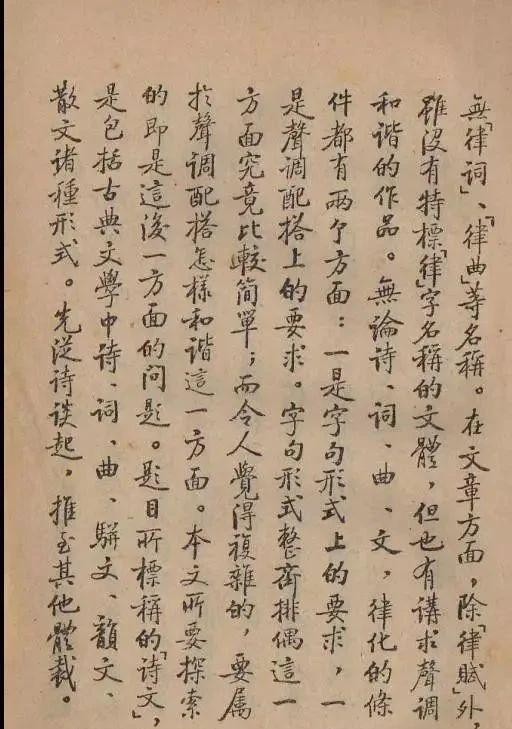 無「律詞」、「律曲」等名稱。在文章方面，除「律賦」外，
雖没有特標「律」字名稱的文體，但也有講求聲調
和谐的作品。無論诗、詞、曲、文，律化的條
件都有兩个方面：一是字句形式上的要求，一
是聲調配搭上的要求。字句形式整齊排偶這一
方面究竟比較简單；而令人覺得複雜的，要属
於聲調配搭怎樣和谐這一方面。本文所要探索
的即是這後一方面的问题。题目所標稱的「诗文」，
是包括古典文學中诗、詞、曲、駢文、韻文、
散文诸種形式。先從诗谈起，推至其他體裁。